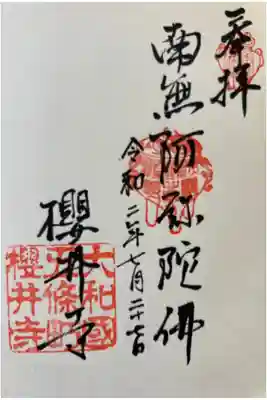 奉拝
南無阿弥陀佛
令和二年七月二十七日
櫻井寺
大和國
五條町
櫻井寺